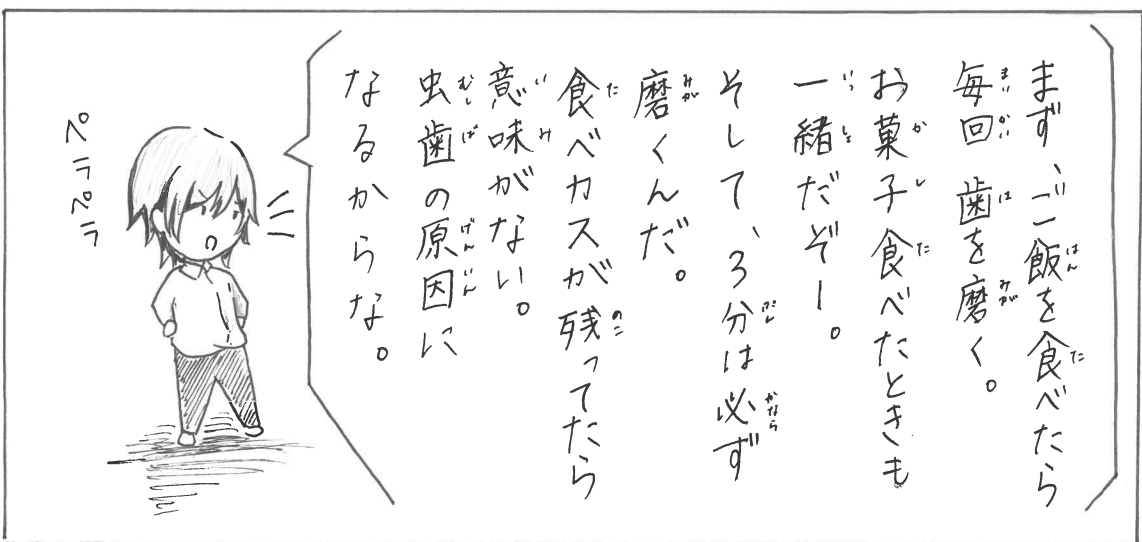 まず、ご飯を食べたら
毎回 歯を磨く。
お菓子食べたときも
一緒だぞー。
そして、3分は必ず
磨くんだ。
食べカスが残ってたら
意味がない。
虫歯の原因に
なるからな。
ペラペラ